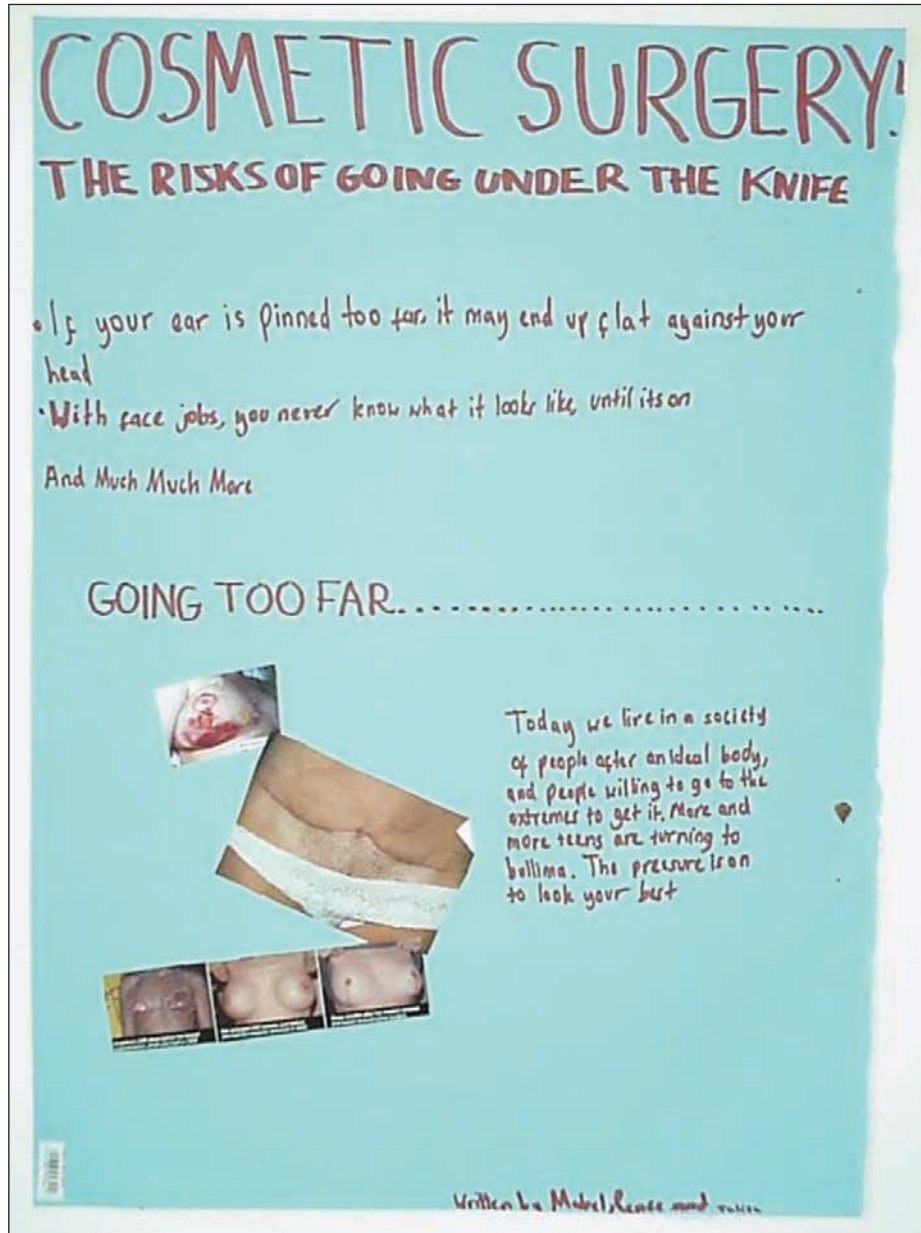 COSMETIC SURGERY!
THE RISKS OF GOING UNDER THE KNIFE
• If your ear is pinned too far, it may end up flat against your
head
• With face jobs, you never know what it looks like, until its on
And Much Much More
GOING TOO FAR................................
Today we live in a society
of people after an ideal body,
and people willing to go to the
extremes to get it. More and
more teens are turning to
bullima. The pressure is on
to look your best
Written by Mabel, Renee and